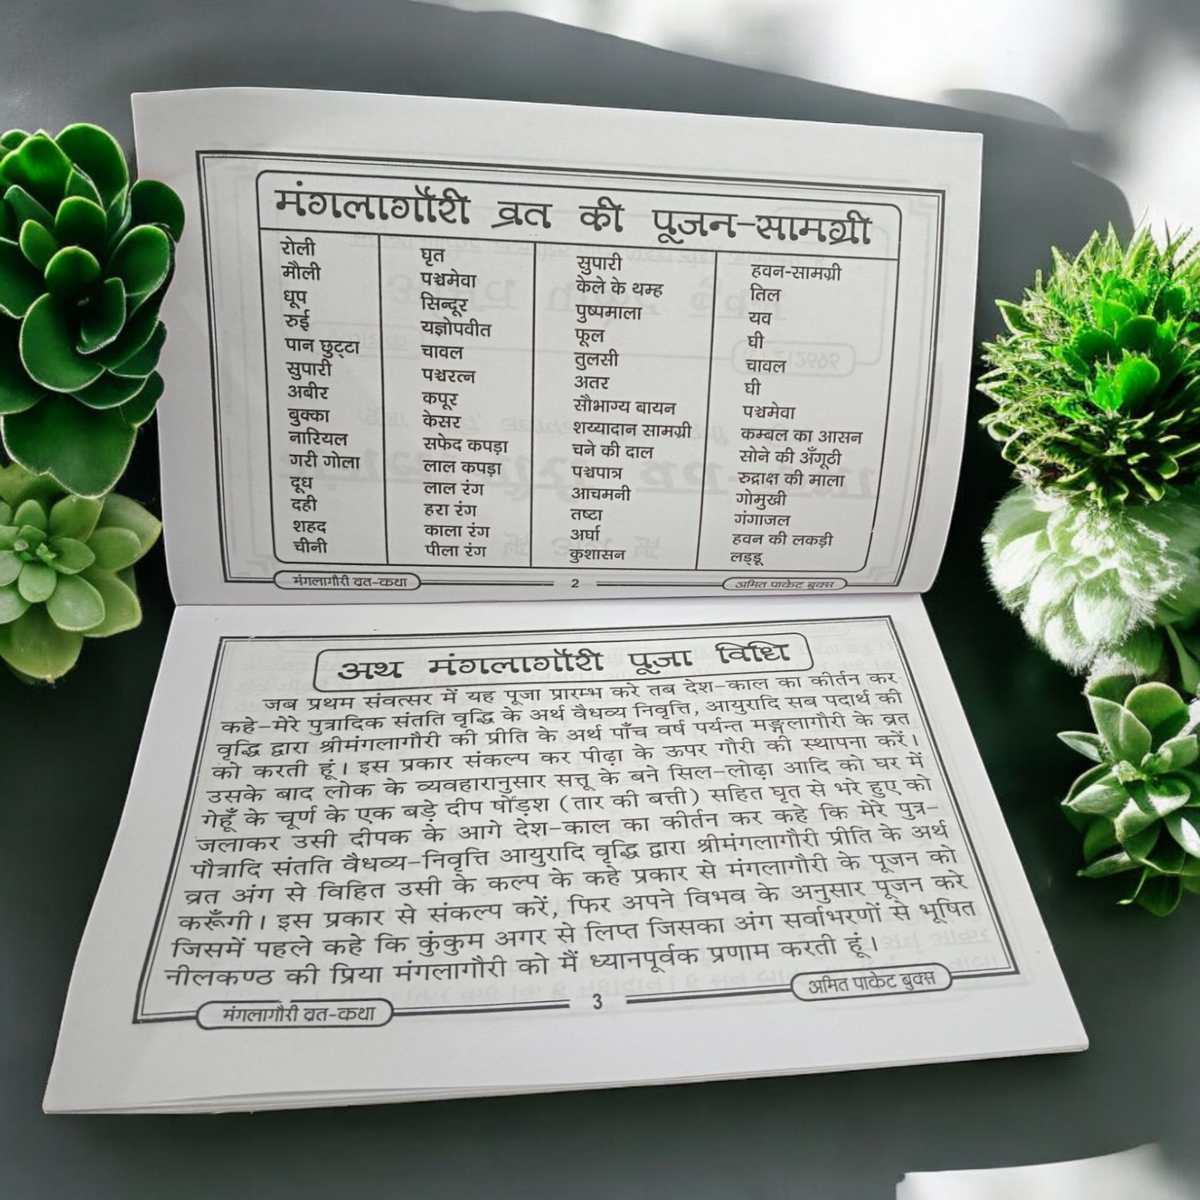 मंगलागौरी व्रत की पूजन-सामग्री
रोली
मौली
धूप
रुई
पान छुट्टा
सुपारी
अबीर
बुक्का
नारियल
गरी गोला
दूध
दही
शहद
चीनी
घृत
पञ्चमेवा
सिन्दूर
यज्ञोपवीत
चावल
पञ्चरत्न
कपूर
केसर
सफेद कपड़ा
लाल कपड़ा
लाल रंग
हरा रंग
काला रंग
पीला रंग
सुपारी
केले के थम्ह
पुष्पमाला
फूल
तुलसी
अतर
सौभाग्य बायन
शय्यादान सामग्री
चने की दाल
पञ्चपात्र
आचमनी
तष्टा
अर्घा
कुशासन
हवन-सामग्री
तिल
यव
घी
चावल
घी
पञ्चमेवा
कम्बल का आसन
सोने की अँगूठी
रुद्राक्ष की माला
गोमुखी
गंगाजल
हवन की लकड़ी
लड्डू
मंगलागौरी व्रत-कथा 2 अमित पाकेट बुक्स
अथ मंगलागौरी पूजा विधि
जब प्रथम संवत्सर में यह पूजा प्रारम्भ करे तब देश-काल का कीर्तन कर
कहे-मेरे पुत्रादिक संतति वृद्धि के अर्थ वैधव्य निवृत्ति, आयुरादि सब पदार्थ की
वृद्धि द्वारा श्रीमंगलागौरी की प्रीति के अर्थ पाँच वर्ष पर्यन्त मङ्गलागौरी के व्रत
को करती हूं। इस प्रकार संकल्प कर पीढ़ा के ऊपर गौरी की स्थापना करें।
उसके बाद लोक के व्यवहारानुसार सत्तू के बने सिल-लोढ़ा आदि को घर में
गेहूँ के चूर्ण के एक बड़े दीप षोंड़श (तार की बत्ती) सहित घृत से भरे हुए को
जलाकर उसी दीपक के आगे देश-काल का कीर्तन कर कहे कि मेरे पुत्र-
पौत्रादि संतति वैधव्य-निवृत्ति आयुरादि वृद्धि द्वारा श्रीमंगलागौरी प्रीति के अर्थ
व्रत अंग से विहित उसी के कल्प के कहे प्रकार से मंगलागौरी के पूजन को
करूँगी। इस प्रकार से संकल्प करें, फिर अपने विभव के अनुसार पूजन करे
जिसमें पहले कहे कि कुंकुम अगर से लिप्त जिसका अंग सर्वाभरणों से भूषित
नीलकण्ठ की प्रिया मंगलागौरी को मैं ध्यानपूर्वक प्रणाम करती हूं।
मंगलागौरी व्रत-कथा 3 अमित पाकेट बुक्स